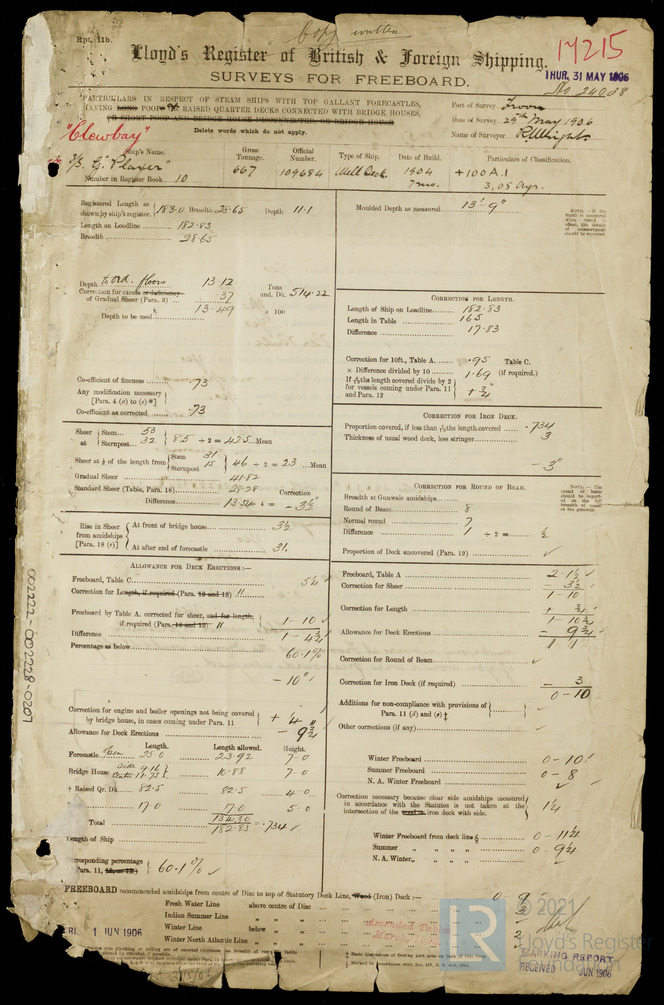 Rpt. 11b.
Copy written
Lloyd's Register of British & Foreign Shipping.
17215
THUR, 31 MAY 1906
SURVEYS FOR FREEBOARD.
No 24088
PARTICULARS IN RESPECT OF STEAM SHIPS WITH TOP GALLANT FORECASTLES,
HAVING LONG POOPS OR RAISED QUARTER DECKS CONNECTED WITH BRIDGE HOUSES,
OR SHORT POOP AND BRIDGE HOUSE DISCONNECTED, OR BRIDGE HOUSE
Delete words which do not apply.
Port of Survey Troon
Date of Survey 29th May 1906
Name of Surveyor R. Wright
"Clewbay"
Ship's Name. Gross Tonnage. Official Number. Type of Ship. Date of Build. Particulars of Classification.
S/S. "G. Player" 667 109684 Well Deck 1904 +100A.1
Number in Register Book 10 7mo. 3,05 Ayr.
Registered Length as shown by ship's register. 183.0 Breadth 28.65 Depth 11.1
Length on Loadline 182.83
Breadth 28.65
Moulded Depth as measured 13'. 9"
NOTE.—If the depth is measured when round is
of measurement should be reported.
Depth to ord. floors 13.12
Correction for excess or deficiency of Gradual Sheer (Para. 8) .37
Depth to be used 13.49
Tons und. Dk. 514.22
× 100
Co-efficient of fineness .73
Any modification necessary [Para. 4 (a) to (e)*]
Co-efficient as corrected .73
CORRECTION FOR LENGTH.
Length of Ship on Loadline 182.83
Length in Table 165
Difference 17.83
Correction for 10ft., Table A. .95 Table C.
× Difference divided by 10 1.69 (if required.)
If 6/10ths length covered divide by 2 for vessels coming under Para. 11 and Para. 12 + 3/4"
CORRECTION FOR IRON DECK.
Proportion covered, if less than 7/10ths length covered .734
Thickness of usual wood deck, less stringer 3
- 3"
Sheer at { Stem 53 Sternpost 32 } 85 ÷ 2 = 42.5 Mean
Sheer at 1/8 of the length from { Stem 31 Sternpost 15 } 46 ÷ 2 = 23 Mean
Gradual Sheer 41.82
Standard Sheer (Table, Para. 18) 28.28 Correction
Difference 13.54 ÷ 4 = - 3½"
CORRECTION FOR ROUND OF BEAM.
Breadth at Gunwale amidships
Round of Beam 8
Normal round 7
Difference 1 ÷ 2 = ½
Proportion of Deck uncovered (Para. 19)
Rise in Sheer from amidships [Para. 18 (e)] { At front of bridge house 3½
At after end of forecastle 31.
ALLOWANCE FOR DECK ERECTIONS:—
Freeboard, Table C. 5¼
Correction for Length, if required (Para. 12 and 13) 11
Freeboard by Table A. corrected for sheer, and for length, if required (Para. 12 and 13) 11 1-10
Difference 1-4¾
Percentage as below 60.1%
- 10"
Correction for engine and boiler openings not being covered by bridge house, in cases coming under Para. 11 + ¼"
Allowance for Deck Erections - 9¾
Length. Length allowed. Height.
Forecastle 25.0 23.92 7-0
Bridge House side 9.16 centre 11.75 10.88 7-0
† Raised Qr. Dk. 82.5 82.5 4-0
17.0 17.0 5-0
Total 134.30
Length of Ship 182.83 = .734
Corresponding percentage Para. 11, 12, or 13 } 60.1%
Freeboard, Table A 2-1½
Correction for Sheer - 3½
1-10
Correction for Length + ¾
1-10¾
Allowance for Deck Erections - 9¾
1-1
Correction for Round of Beam
Correction for Iron Deck (if required) - 3
0-10
Additions for non-compliance with provisions of Para. 11 (d) and (e) ‡
Other corrections (if any)
Winter Freeboard 0-10
Summer Freeboard 0-8
N. A. Winter Freeboard
Correction necessary because clear side amidships measured in accordance with the Statutes is not taken at the intersection of the wood or iron deck with side. 1¼
Winter Freeboard from deck line § 0-11¼
Summer „ „ „ „ 0-9¼
N. A. Winter „ „ „ „
FREEBOARD recommended amidships from centre of Disc to top of Statutory Deck Line, Wood (Iron) Deck:—
Fresh Water Line above centre of Disc
Indian Summer Line „ „
Winter Line below „
Winter North Atlantic Line „ „
FRI. 1 JUN 1906
Amended Tables
MARKING REPORT
RECEIVED JUN. 1906
002222-002228-0207
LR
© 2021
Lloyd's Register
Foundation